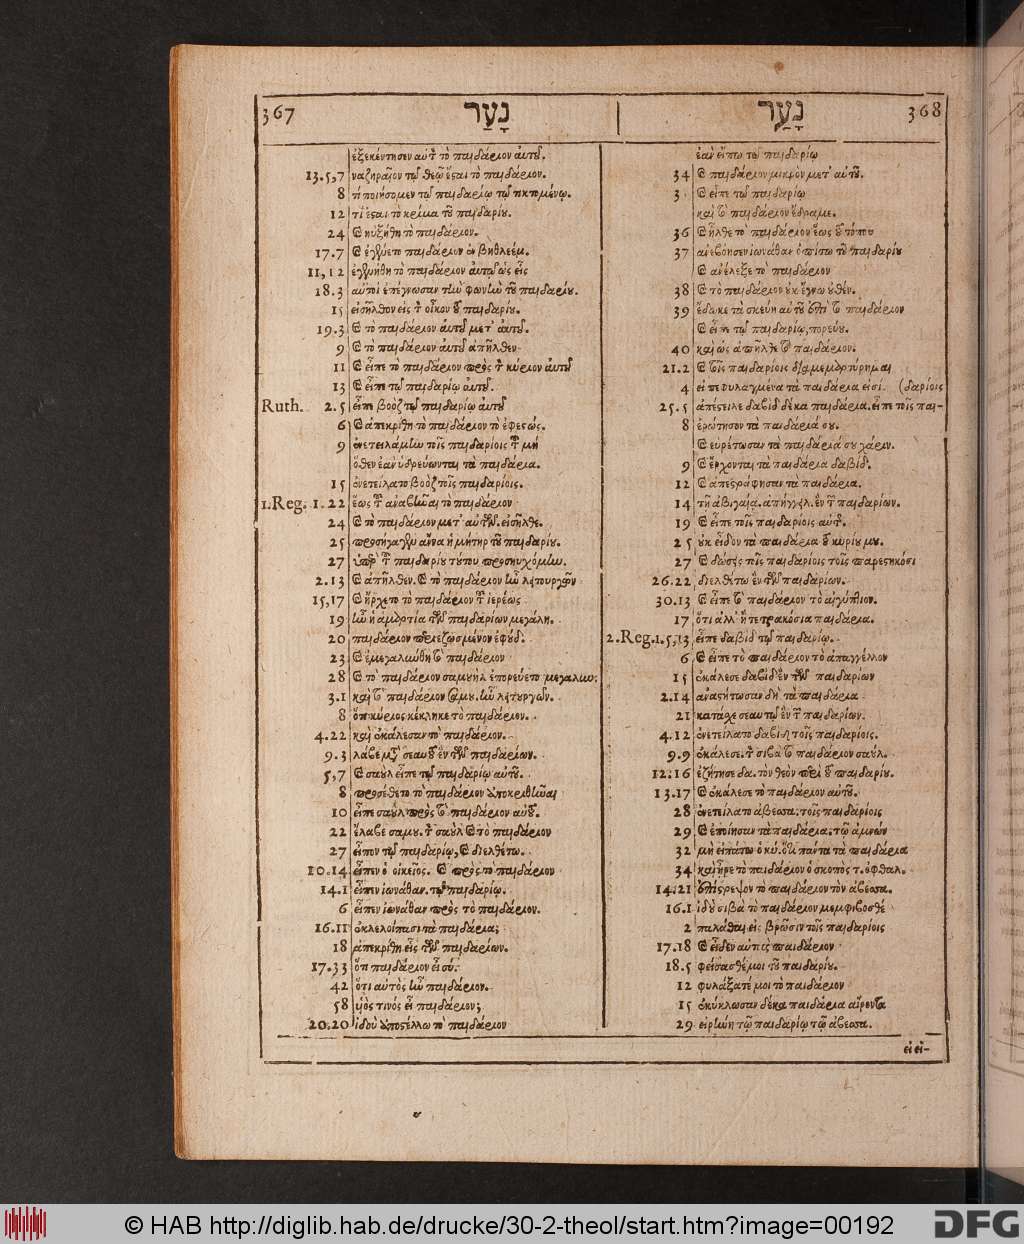 367 נָעַר
ἐξεκέντησεν αὐτὸ τὸ παιδάριον αὐτοῦ.
13.5,7 ναζηραῖον τῷ θεῷ ἔσαι τὸ παιδάριον.
8 τί ποιήσομεν τῷ παιδαρίῳ τῷ τικτομένῳ.
12 τί ἔσαι τὸ κρίμα τοῦ παιδαρίου.
24 καὶ ηὐξήθη τὸ παιδάριον.
17.7 καὶ ἐγένετο παιδάριον ἐν βηθλεέμ.
11,12 ἐγενήθη τὸ παιδάριον αὐτῷ ὡς εἷς
18.3 αὐτοὶ ἐπέγνωσαν τὴν φωνὴν τοῦ παιδαρίου.
15 εἰσῆλθον εἰς τὸν οἶκον τοῦ παιδαρίου.
19.3 καὶ τὸ παιδάριον αὐτοῦ μετ' αὐτοῦ.
9 καὶ τὸ παιδάριον αὐτοῦ ἀπῆλθεν
11 καὶ εἶπε τὸ παιδάριον πρὸς τὸν κύριον αὐτοῦ
13 καὶ εἶπε τῷ παιδαρίῳ αὐτοῦ.
Ruth. 2.5 εἶπε βοὸζ τῷ παιδαρίῳ αὐτοῦ
6 καὶ ἀπεκρίθη τὸ παιδάριον τὸ ἐφεςώς.
9 ἐνετειλάμην τοῖς παιδαρίοις τοῦ μή
ὅθεν ἐὰν ὑδρεύωνται τὰ παιδάρια.
15 ἐνετείλατο βοὸζ τοῖς παιδαρίοις.
1.Reg. 1.22 ἕως τοῦ ἀναβῆναι τὸ παιδάριον
24 καὶ τὸ παιδάριον μετ' αὐτῶν. εἰσῆλθε.
25 προσήγαγεν ἄννα ἡ μήτηρ τοῦ παιδαρίου.
27 ὑπὲρ τοῦ παιδαρίου τούτου προσηυχόμην.
2.13 καὶ ἀπῆλθεν. καὶ τὸ παιδάριον ἦν λειτουργῶν
15,17 καὶ ἤρχετο τὸ παιδάριον τοῦ ἱερέως
19 ἦν ἡ ἁμαρτία τῶν παιδαρίων μεγάλη.
20 παιδάριον περιεζωσμένον ἐφούδ.
23 καὶ ἐμεγαλύνθη τὸ παιδάριον
28 καὶ τὸ παιδάριον σαμουὴλ ἐπορεύετο μεγαλυν:
3.1 καὶ τὸ παιδάριον σαμου. ἦν λειτουργῶν.
8 ὅτι κύριος κέκληκε τὸ παιδάριον.
4.22 καὶ ἐκάλεσαν τὸ παιδάριον.
9.3 λάβε μετὰ σεαυτοῦ ἓν τῶν παιδαρίων.
5,7 καὶ σαοὺλ εἶπε τῷ παιδαρίῳ αὐτοῦ.
8 προσέθετο τὸ παιδάριον ἀποκριθῆναι
10 εἶπε σαοὺλ πρὸς τὸ παιδάριον αὐτοῦ.
22 ἔλαβε σαμου. τὸν σαοὺλ καὶ τὸ παιδάριον
27 εἶπον τῷ παιδαρίῳ, καὶ διελθέτω.
10.14 εἶπεν ὁ οἰκεῖος. καὶ πρὸς τὸ παιδάριον
14.1 εἶπεν ἰωνάθαν. τῷ παιδαρίῳ.
6 εἶπεν ἰωνάθαν πρὸς τὸ παιδάριον.
16.11 ἐκλελοίπασι τὰ παιδάρια;
18 ἀπεκρίθη εἷς τῶν παιδαρίων.
17.33 ὅτι παιδάριον εἶ σύ.
42 ὅτι αὐτὸς ἦν παιδάριον.
58 υἱὸς τίνος εἶ παιδάριον;
20.20 ἰδοὺ ἀποςέλλω τὸ παιδάριον
נָעַר 368
ἐὰν εἴπω τῷ παιδαρίῳ
34 καὶ παιδάριον μικρὸν μετ' αὐτοῦ.
3 καὶ εἶπε τῷ παιδαρίῳ
καὶ τὸ παιδάριον ἔδραμε.
36 καὶ ἦλθε τὸ παιδάριον ἕως τοῦ τόπου
37 ἀνεβόησεν ἰωνάθαν ὀπίσω τοῦ παιδαρίου
καὶ ἀνέλεξε τὸ παιδάριον
38 καὶ τὸ παιδάριον οὐκ ἔγνω οὐθέν.
39 ἔδωκε τὰ σκεύη αὐτοῦ ἐπὶ τὸ παιδάριον
καὶ εἶπε τῷ παιδαρίῳ, πορεύου.
40 καὶ ὡς ἀπῆλθε τὸ παιδάριον.
21.2 καὶ τοῖς παιδαρίοις διαμεμαρτύρημαι
4 εἰ πεφυλαγμένα τὰ παιδάρια εἰσί. (δαρίοις
25.5 ἀπέςειλε δαβὶδ δέκα παιδάρια. εἶπε τοῖς παι-
8 ἐρώτησον τὰ παιδάριά σου.
καὶ εὑρέτωσαν τὰ παιδάριά σου χάριν.
9 καὶ ἔρχονται τὰ παιδάρια δαβίδ.
12 καὶ ἀπεςράφησαν τὰ παιδάρια.
14 τῇ ἀβιγαία. ἀπήγγελ. ἓν τῶν παιδαρίων.
19 καὶ εἶπε τοῖς παιδαρίοις αὐτῆς.
25 οὐκ εἶδον τὰ παιδάρια τοῦ κυρίου μου.
27 καὶ δώσεις τοῖς παιδαρίοις τοῖς παρεςηκόσι
26.22 διελθέτω ἓν τῶν παιδαρίων.
30.13 καὶ εἶπε τὸ παιδάριον τὸ αἰγύπτιον.
17 ὅτι ἀλλ' ἢ τετρακόσια παιδάρια.
2.Reg.1.5,13 εἶπε δαβὶδ τῷ παιδαρίῳ.
6 καὶ εἶπε τὸ παιδάριον τὸ ἀπαγγέλλον
15 ἐκάλεσε δαβὶδ ἓν τῶν παιδαρίων
2.14 ἀναςήτωσαν δὴ τὰ παιδάρια
21 κατάσχε σεαυτῷ ἓν τῶν παιδαρίων.
4.12 ἐνετείλατο δαβὶδ τοῖς παιδαρίοις.
9.9 ἐκάλεσε. τὸν σιβὰ τὸ παιδάριον σαούλ.
12.16 ἐζήτησε δα. τὸν θεὸν περὶ τοῦ παιδαρίου.
13.17 καὶ ἐκάλεσε τὸ παιδάριον αὐτοῦ.
28 ἐνετείλατο ἀβεσσα. τοῖς παιδαρίοις
29 καὶ ἐποίησαν τὰ παιδάρια. τῷ ἀμνὼν
32 μὴ εἰπάτω ὁ κύ. ὅτι πάντα τὰ παιδάρια
34 καὶ ἦρε τὸ παιδάριον ὁ σκοπὸς τ. ὀφθαλ.
14.21 ἐπίςρεψον τὸ παιδάριον τὸν ἀβεσσα.
16.1 ἰδοὺ σιβὰ τὸ παιδάριον μεμφιβοσθέ
2 παλάθαι εἰς βρῶσιν τοῖς παιδαρίοις
17.18 καὶ εἶδεν αὐτοὺς παιδάριον
18.5 φείσασθέ μοι τοῦ παιδαρίου.
12 φυλάξατέ μοι τὸ παιδάριον
15 ἐκύκλωσαν δέκα παιδάρια αἴροντα
29 εἰρήνη τῷ παιδαρίῳ τῷ ἀβεσσα.
εἰ εἰ-
© HAB http://diglib.hab.de/drucke/30-2-theol/start.htm?image=00192
DFG